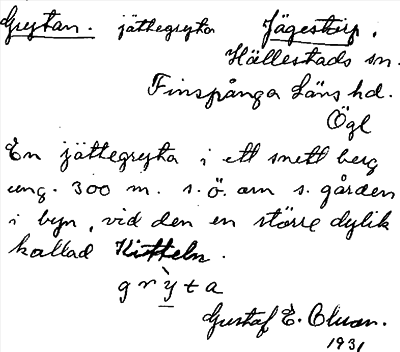 Grytan. jättegryta Jägestorp.
Hällestads sn.
Finspånga Läns hd.
Ögl
En jättegryta i ett snett berg
ung. 300 m. s. ö. om s. gården
i byn, vid den en större dylik
kallad Kitteln.
g r y̖ t a
Gustaf E. Olsson.
1931